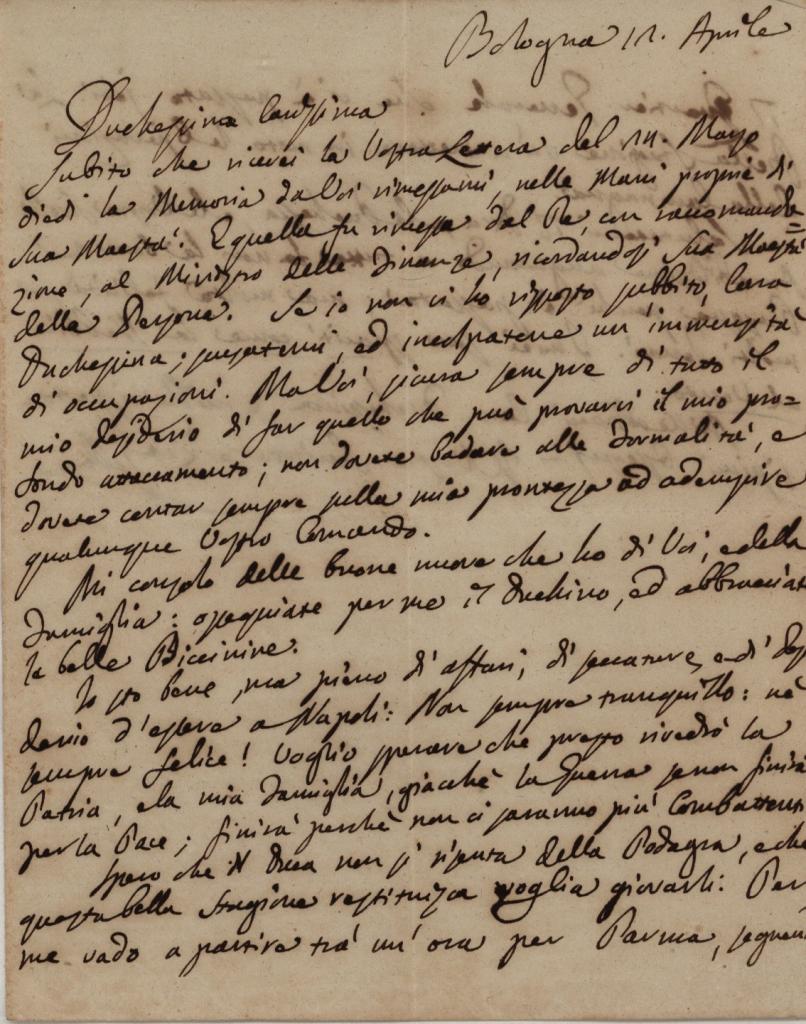 Bologna 12. Aprile
Duchessina Carissima
Subito che ricevei la Vostra Lettera del 14. Marzo
diedi la Memoria da Voi rimessami, nelle Mani proprie di
Sua Maestà. E quella fu rimessa dal Re, con raccomanda=
zione, al Ministro delle Finanze, ricordandosi Sua Maestà
della Persona. Se io non vi ho risposto subbito, Cara
Duchessina, scusatemi, ed incolpatene un' immensità
di occupazioni. Ma Voi, sicura sempre di tutto il
mio desiderio di far quello che può provarvi il mio pro=
fondo attaccamento; non dovete badare alle Formalità, e
dovete contar sempre sulla mia prontezza ad adempire
qualunque Vostro Comando.
Mi consolo delle buone nuove che ho di Voi, e della
Famiglia: ossequiate per me il Duchino, ed abbracciate
le belle Piccinine.
Io sto bene, ma pieno di affari, di seccature, e di desi
derio d'essere a Napoli: Non sempre tranquillo: nè
sempre felice! Voglio sperare che presto rivedrò la
Patria, e la mia Famiglia, giacchè la Guerra se non finirà
per la Pace; finirà perchè non ci saranno più Combattenti
Spero che il Duca non si risenta della Podagra, e che
questa bella Stagione voglia giovarli: Per
me vado a partire trà un' ora per Parma,